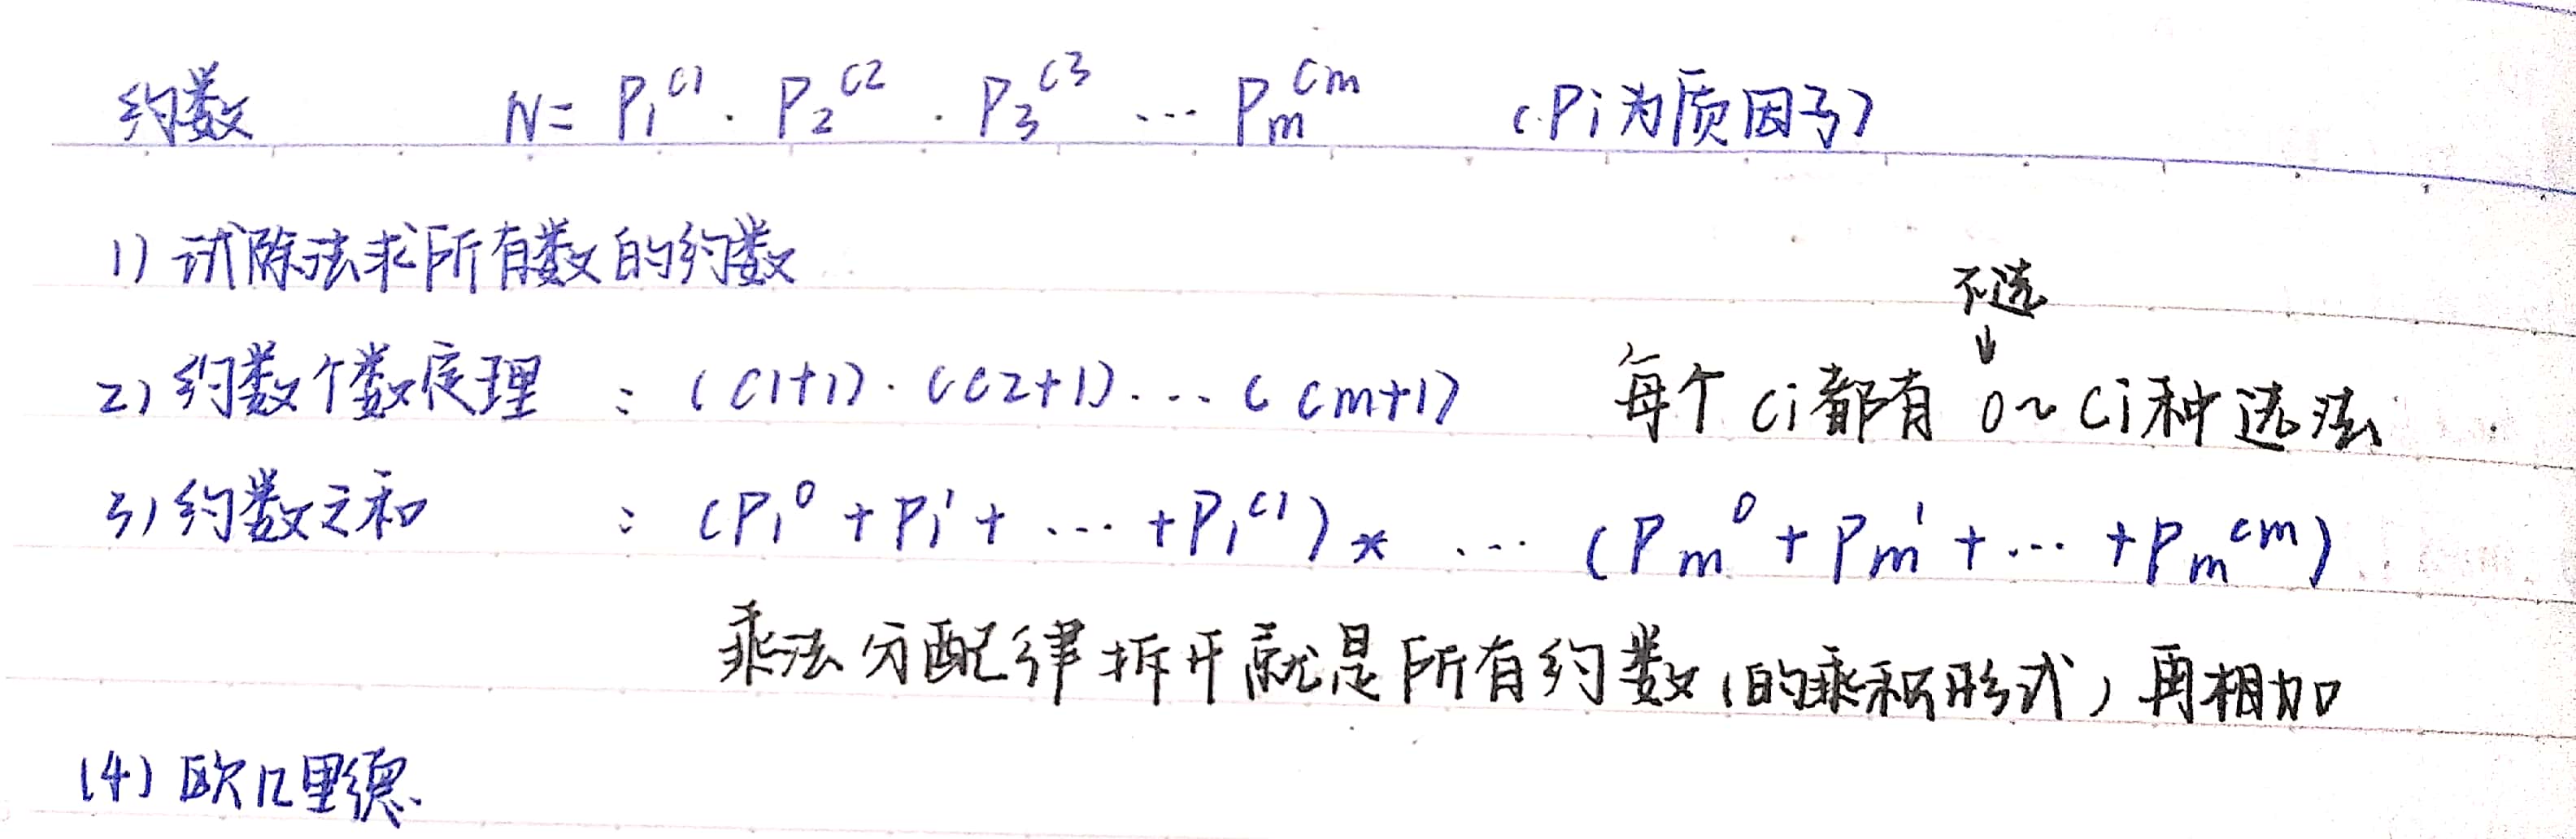 约数 N = P₁^c1 · P₂^c2 · P₃^c3 … Pm^cm (Pi为质因子)
1) 试除法求所有数的约数
不选
↓
2) 约数个数定理 : (c1+1) · (c2+1) … (cm+1) 每个ci都有 0~ci种选法
3) 约数之和 : (P₁^0 + P₁^1 + … + P₁^c1) * … (Pm^0 + Pm^1 + … + Pm^cm)
乘法分配律拆开就是所有约数(的乘积形式)再相加
(4) 欧几里德.